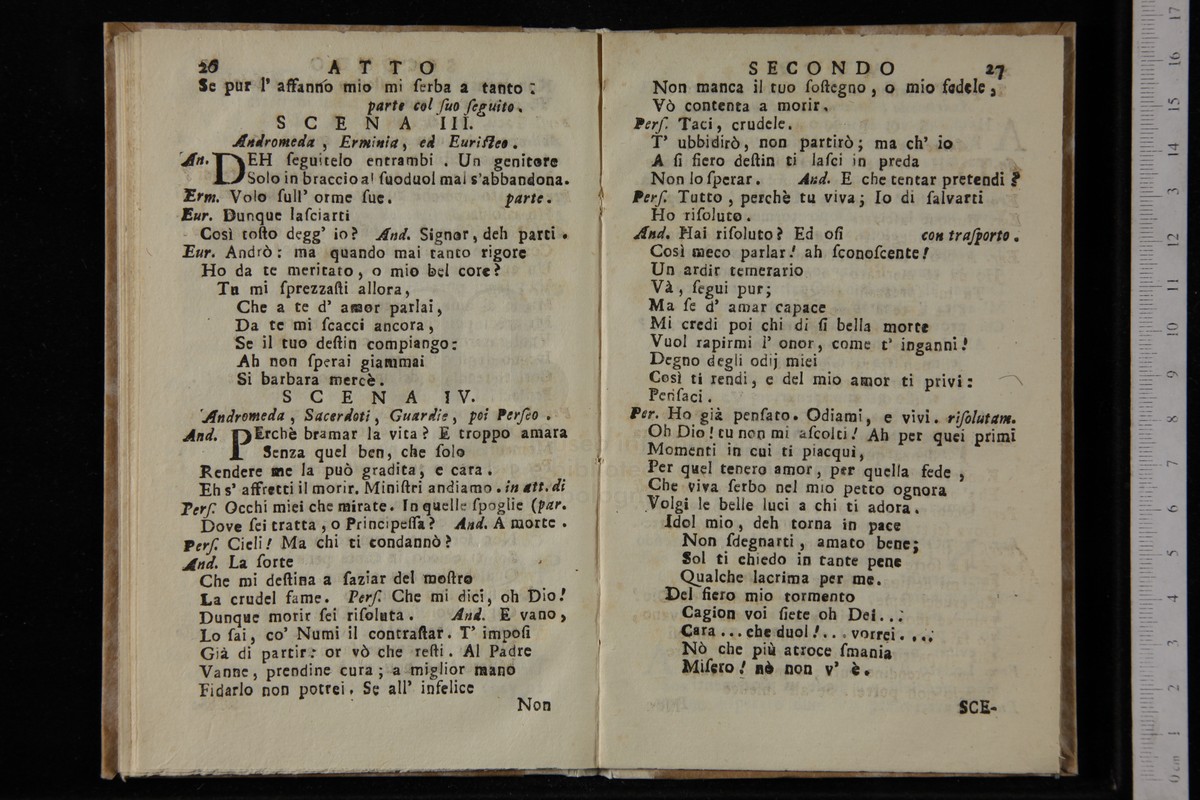 26 ATTO
Se pur l' affanno mio mi ſerba a tanto:
parte col ſuo ſeguito.
SCENA III.
Andromeda, Erminia, ed Euriſteo.
An. DEH ſeguitelo entrambi. Un genitore
Solo in braccio al ſuoduol mal s'abbandona.
Erm. Volo ſull' orme ſue. parte.
Eur. Dunque laſciarti
Così toſto degg' io? And. Signor, deh parti.
Eur. Andrò: ma quando mai tanto rigore
Ho da te meritato, o mio bel core?
Tu mi ſprezzaſti allora,
Che a te d' amor parlai,
Da te mi ſcacci ancora,
Se il tuo deſtin compiango:
Ah non ſperai giammai
Si barbara mercè.
SCENA IV.
Andromeda, Sacerdoti, Guardie, poi Perſeo.
And. PErchè bramar la vita? E troppo amara
Senza quel ben, che ſolo
Rendere me la può gradita, e cara.
Eh s' affretti il morir. Miniſtri andiamo. in att. di
Perſ. Occhi miei che mirate. In quelle ſpoglie (par.
Dove ſei tratta, o Principeſſa? And. A morte.
Perſ. Cieli! Ma chi ti condannò?
And. La ſorte
Che mi deſtina a ſaziar del moſtro
La crudel fame. Perſ. Che mi dici, oh Dio!
Dunque morir ſei riſoluta. And. E vano,
Lo ſai, co' Numi il contraſtar. T' impoſi
Già di partir: or vò che reſti. Al Padre
Vanne, prendine cura; a miglior mano
Fidarlo non potrei. Se all' infelice
Non
SECONDO 27
Non manca il tuo ſoſtegno, o mio fedele,
Vò contenta a morir.
Perſ. Taci, crudele.
T' ubbidirò, non partirò; ma ch' io
A ſi fiero deſtin ti laſci in preda
Non lo ſperar. And. E che tentar pretendi?
Perſ. Tutto, perchè tu viva; Io di ſalvarti
Ho riſoluto.
And. Hai riſoluto? Ed oſi con traſporto.
Così meco parlar! ah ſconoſcente!
Un ardir temerario
Và, ſegui pur;
Ma ſe d' amar capace
Mi credi poi chi di ſi bella morte
Vuol rapirmi l' onor, come t' inganni!
Degno degli odij miei
Così ti rendi, e del mio amor ti privi:
Penſaci.
Per. Ho già penſato. Odiami, e vivi. riſolutam.
Oh Dio! tu non mi aſcolti! Ah per quei primi
Momenti in cui ti piacqui,
Per quel tenero amor, per quella fede,
Che viva ſerbo nel mio petto ognora
Volgi le belle luci a chi ti adora.
Idol mio, deh torna in pace
Non ſdegnarti, amato bene;
Sol ti chiedo in tante pene
Qualche lacrima per me.
Del fiero mio tormento
Cagion voi ſiete oh Dei...
Cara... che duol!... vorrei....
Nò che più atroce ſmania
Miſero! nò non v' è.
SCE-
0 cm 1 2 3 4 5 6 7 8 9 10 11 12 13 14 15 16 17